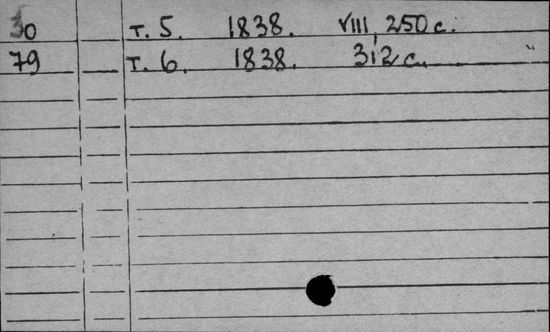 30 т. 5. 1838. VIII, 250 с.
79 т. 6. 1838. 312 с.